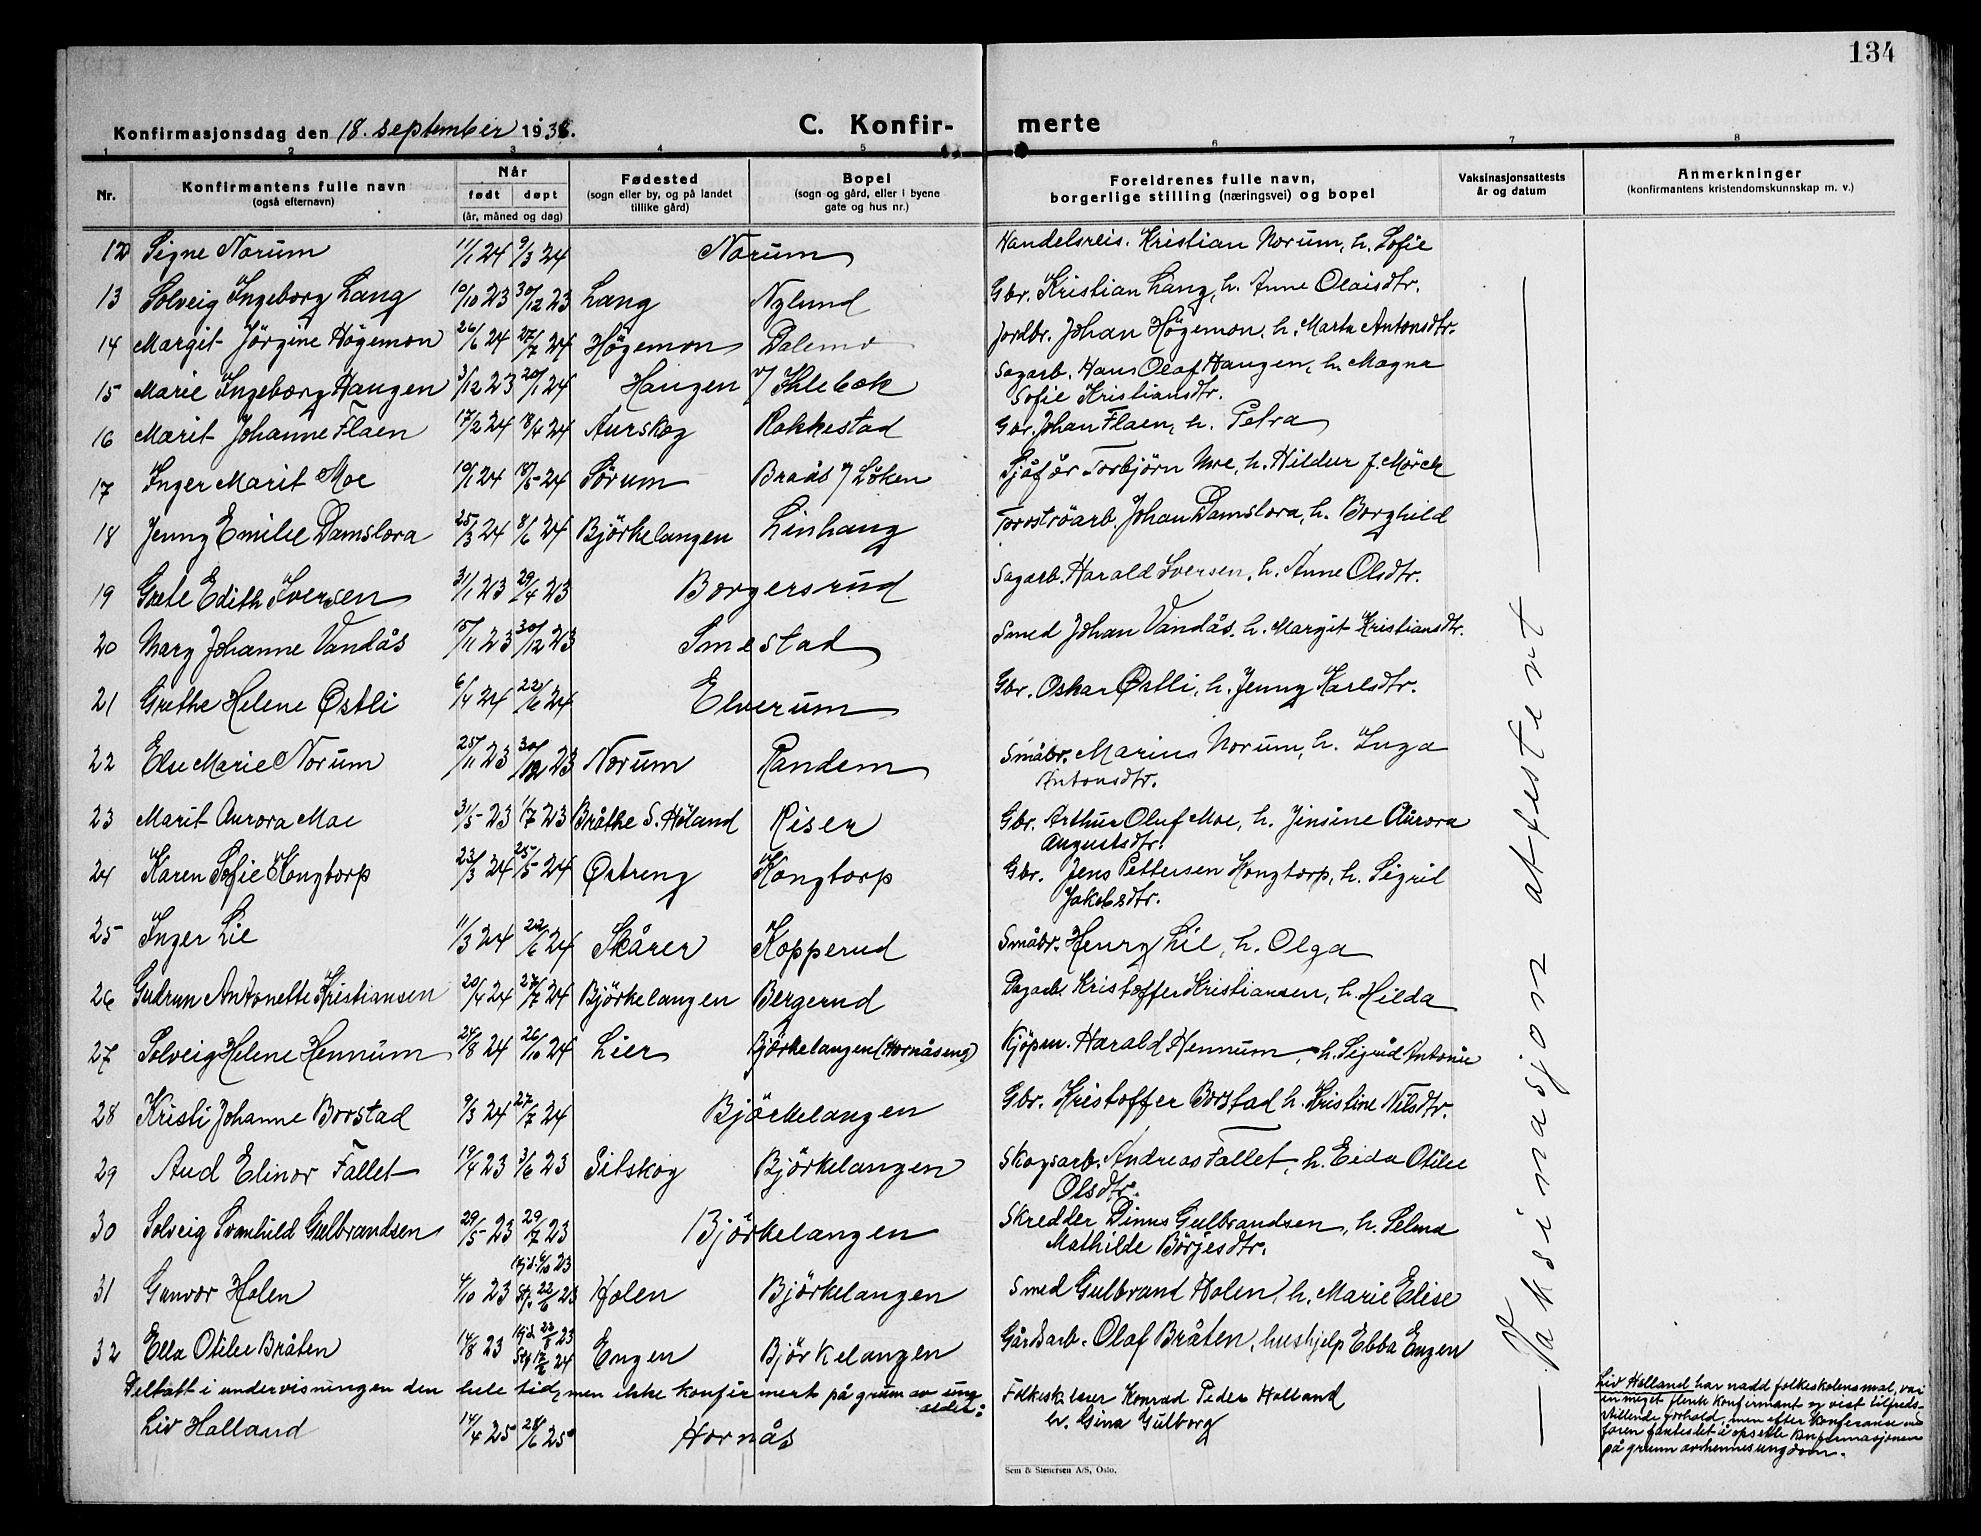 134
Konfirmasjonsdag den 18. september 1938.
C. Konfir- merte
1 2 3 4 5 6 7 8
Nr.
Konfirmantens fulle navn
(også efternavn)
Når
født døpt
(år, måned og dag)
Fødested
(sogn eller by, og på landet
tillike gård)
Bopel
(sogn og gård, eller i byene
gate og hus nr.)
Foreldrenes fulle navn,
borgerlige stilling (næringsvei) og bopel
Vaksinasjonsattests
år og datum
Anmerkninger
(konfirmantens kristendomskunnskap m. v.)
12 Signe Norum 11/1 24 9/3 24 Norum Handelsreis. Kristian Norum, h. Sofie
13 Solveig Ingeborg Lang 19/10 23 30/12 23 Lang Nylund Gbr. Kristian Lang, h. Anne Olaisdtr.
14 Margit Jörgine Högemon 26/6 24 27/7 24 Högemon Dalemo Jordbr. Johan Högemon, h. Marta Antonsdtr.
15 Marie Ingeborg Haugen 3/12 23 20/1 24 Haugen v/ Khlebæk Sagarb. Hans Olaf Haugen, h. Magna
Sofie Kristiansdtr.
16 Marit Johanne Flaen 17/2 24 18/4 24 Aurskog Rakkestad Gbr. Johan Flaen, h. Petra
17 Inger Marit Moe 19/1 24 18/5 24 Sörum Braås v/ Löken Sjåför Torbjörn Moe, h. Hildur f. Mörck
18 Jenny Emilie Damslora 25/3 24 8/6 24 Björkelangen Linhaug Torvströarb. Johan Damslora, h. Borghild
19 Grete Edith Iversen 31/1 23 29/4 23 Borgersrud Sagarb. Harald Iversen, h. Anne Olsdtr.
20 Mary Johanne Vandås 15/11 23 30/12 23 Smestad Smed Johan Vandås, h. Margit Kristiansdtr.
21 Grethe Helene Østli 6/4 24 22/6 24 Elverum Gbr. Oskar Østli, h. Jenny Karlsdtr.
22 Else Marie Norum 25/11 23 30/12 23 Norum Randem Småbr. Marius Norum, h. Inga
Antonsdtr.
23 Marit Aurora Moe 31/5 23 1/7 23 Bråthe S. Höland Riser Gbr. Arthur Oluf Moe, h. Jinsine Aurora
Augustsdtr.
24 Karen Sofie Kongtorp 23/3 24 25/5 24 Østreng Kongtorp Gbr. Jens Pettersen Kongtorp, h. Sigrid
Jakobsdtr.
25 Inger Lie 11/3 24 22/6 24 Skårer Kopperud Småbr. Henry Lie, h. Olga
26 Gudrun Antonette Kristiansen 20/4 24 27/7 24 Björkelangen Bergerud Dagarb. Kristoffer Kristiansen, h. Hilda
27 Solveig Helene Hennum 24/8 24 26/10 24 Lier Björkelangen (Hornåseng) Kjöpm. Harald Hennum, h. Sigrid Antonie
28 Kristi Johanne Borstad 9/3 24 27/7 24 Björkelangen Gbr. Kristoffer Borstad h. Kristine Nilsdtr.
29 Aud Elinor Fallet 19/4 23 3/6 23 Setskog Björkelangen Skogsarb. Andreas Fallet, h. Eida Otilie
Olsdtr.
30 Solveig Svanhild Gulbrandsen 29/5 23 29/7 23 Björkelangen Skredder Dinus Gulbrandsen, h. Selma
Mathilde Börjesdtr.
31 Gunvor Holen 4/10 23 Holen Björkelangen Smed Gulbrand Holen, h. Marie Elise
32 Ella Otilie Bråten 14/8 23 Engen Björkelangen Gårdsarb. Olaf Bråten, hushjelp Ebba Engen
Deltatt i undervisningen den hele tid, men ikke konfirmert på grunn av ung
alder:
Liv Holland 14/4 25 28/6 25 Hornås Folkesk.lærer Konrad Peder Holland
h. Gina Gulborg
— Vaksinasjon attestert —
Liv Holland har nådd folkeskolens mål, var
en meget flink konfirmant og vist tilfreds-
stillende forhold, men efter konferanse med
faren fantes det å opsette konfirmasjonen
på grunn av hennes ungdom.
Sem & Stenersen A/S, Oslo.